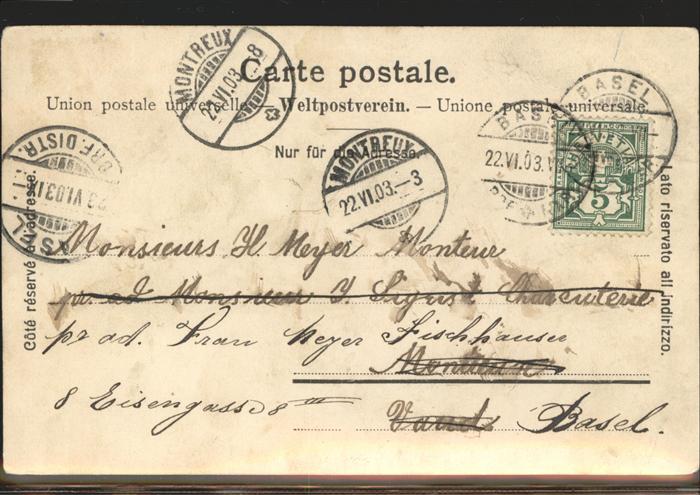 MONTREUX
22.VI.03.-8
Carte postale.
Union postale universelle. — Weltpostverein. — Unione postale universale
Nur für die Adresse.
MONTREUX
22.VI.03.-3
BASEL
BASEL
22.VI.03.
HELVETIA
5
BRF.DISTR.
BASEL
Côté réservé à l'adresse.
Lato riservato all'indirizzo.
Monsieurs H. Meyer Monteur
pr. ad Monsieur J. Sigrist Charcuterie
pr ad. Frau Meyer Fischhauser
Montreux
8 Eisengasse 8
Vaud Basel.